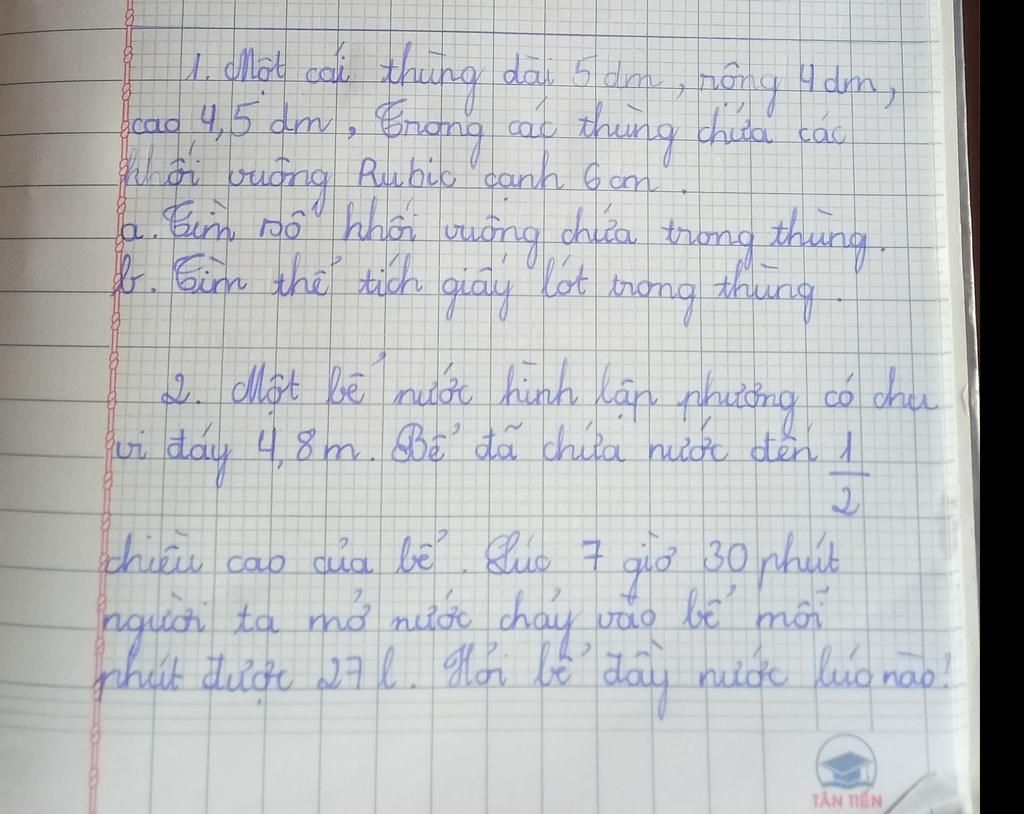 1. Một cái thùng dài 5 dm, rộng 4 dm,
cao 4,5 dm, Trong các thùng chứa các
khối vuông Rubic cạnh 6 cm.
a. Tìm số khối vuông chứa trong thùng.
b. Tìm thể tích giấy lót trong thùng.
2. Một bể nước hình lập phương có chu
vi đáy 4,8 m. Bể đã chứa nước đến 1/2
chiều cao của bể. Lúc 7 giờ 30 phút
người ta mở nước chảy vào bể mỗi
phút được 27 l. Hỏi bể đầy nước lúc nào?
TÂN TIẾN